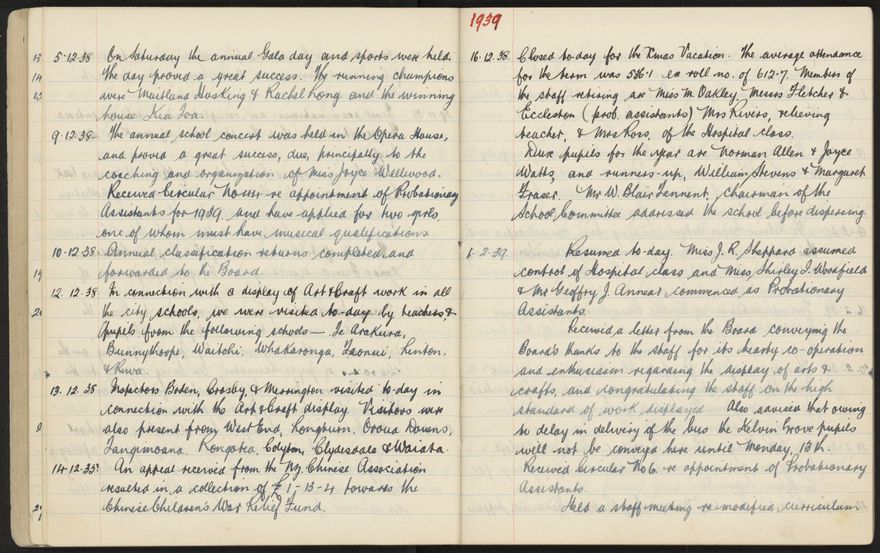 5.12.38 On Saturday the annual Gala day and sports were held.
The day proved a great success. The running champions
were Maitland Hosking & Rachel Kong and the winning
house Kia Toa.
9.12.38. The annual school concert was held in the Opera House,
and proved a great success, due, principally to the
coaching and organization of Miss Joyce Wellwood.
Received Circular re appointment of Probationary
Assistants for 1939 and have applied for two girls
one of whom must have musical qualifications
10.12.38 Annual classification returns completed and
forwarded to the Board
12.12.38. In connection with a display of Art & Craft work in all
the city schools, we were visited to-day by teachers &
pupils from the following schools — Te Arakura,
Bunnythorpe, Waitohi, Whakaronga, Taonui, Linton.
& Kiwa.
13.12.38 Inspectors Boden, Crosby, & Merrington visited to-day in
connection with the Art & Craft display. Visitors were
also present from West End, Longburn, Oroua Downs,
Tangimoana, Rongotea, Colyton, Clydesdale & Waiata.
14.12.38. An appeal received from the NZ. Chinese Association
resulted in a collection of £1-13-4 towards the
Chinese Children's War Relief Fund.
1939
16.12.38. Closed to-day for the Xmas Vacation. The average attendance
for the term was 546.1 ex roll no. of 612.7. Members of
the staff retiring are Miss M. Oakley, Messrs Fletcher &
Eccleston (prob. assistants) Mrs Rivers, relieving
teacher, & Mrs Ross, of the Hospital class.
Dux pupils for the year are Norman Allen & Joyce
Watts, and runners-up, William Stevens & Margaret
Fraser. Mr W. Blair Tennent, chairman of the
School Committee addressed the school before dispersing
1.2.39. Resumed to-day. Miss J. R. Sheppard assumed
control of Hospital class and Miss Shirley I. Woodfield
& Mr Geoffry J. Annear commenced as Probationary
Assistants.
Received a letter from the Board conveying the
Board's thanks to the staff for its hearty co-operation
and enthusiasm regarding the display of arts &
crafts, and congratulating the staff on the high
standard of work displayed. Also advised that owing
to delay in delivery of the bus the Kelvin Grove pupils
will not be conveyed here until Monday, 13th.
Received circular No 6. re appointment of Probationary
Assistants.
Held a staff meeting re modified curriculum